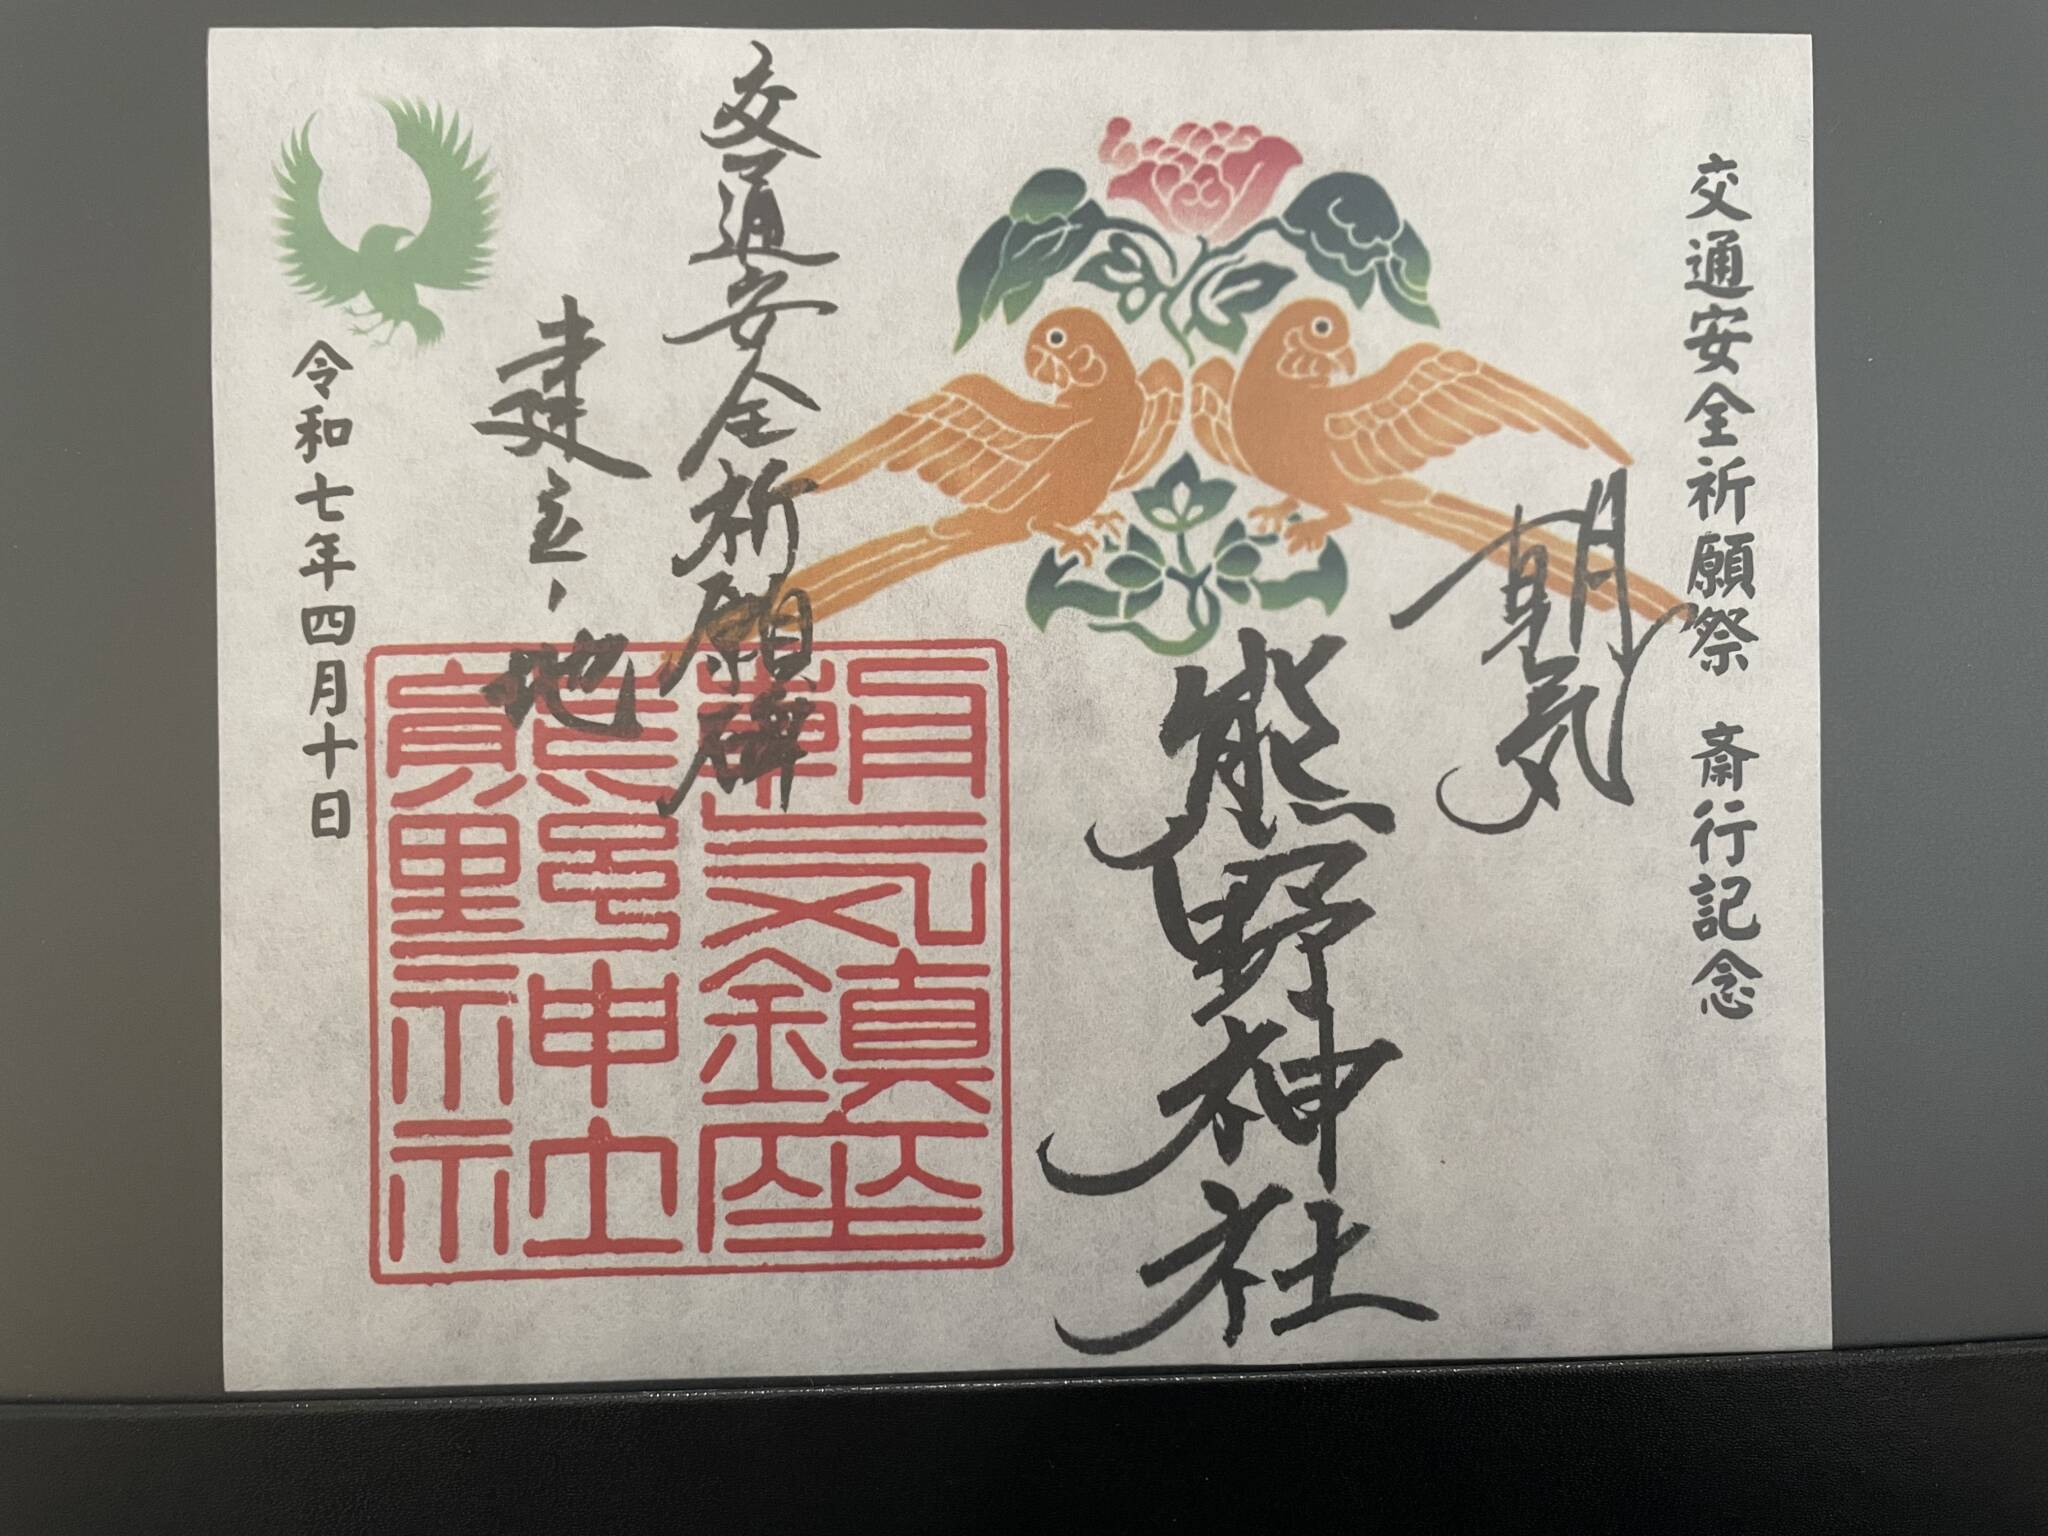 交通安全祈願祭 斎行記念
朝気
熊野神社
交通安全祈願碑
建立ノ地
朝气鎮座
熊野神社
令和七年四月十日